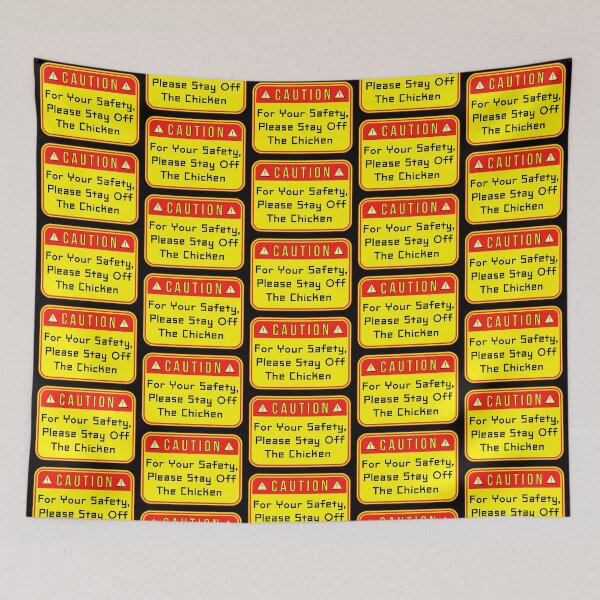 CAUTION
For Your Safety,
Please Stay Off
The Chicken
CAUTION
For Your Safety,
Please Stay Off
The Chicken
CAUTION
For Your Safety,
Please Stay Off
The Chicken
CAUTION
For Your Safety,
Please Stay Off
The Chicken
CAUTION
For Your Safety,
Please Stay Off
The Chicken
CAUTION
For Your Safety,
Please Stay Off
Please Stay Off
The Chicken
CAUTION
For Your Safety,
Please Stay Off
The Chicken
CAUTION
For Your Safety,
Please Stay Off
The Chicken
CAUTION
For Your Safety,
Please Stay Off
The Chicken
CAUTION
For Your Safety,
Please Stay Off
The Chicken
CAUTION
For Your Safety,
Please Stay Off
The Chicken
CAUTION
CAUTION
For Your Safety,
Please Stay Off
The Chicken
CAUTION
For Your Safety,
Please Stay Off
The Chicken
CAUTION
For Your Safety,
Please Stay Off
The Chicken
CAUTION
For Your Safety,
Please Stay Off
The Chicken
CAUTION
For Your Safety,
Please Stay Off
The Chicken
CAUTION
For Your Safety,
Please Stay Off
Please Stay Off
The Chicken
CAUTION
For Your Safety,
Please Stay Off
The Chicken
CAUTION
For Your Safety,
Please Stay Off
The Chicken
CAUTION
For Your Safety,
Please Stay Off
The Chicken
CAUTION
For Your Safety,
Please Stay Off
The Chicken
CAUTION
For Your Safety,
Please Stay Off
The Chicken
CAUTION
CAUTION
For Your Safety,
Please Stay Off
The Chicken
CAUTION
For Your Safety,
Please Stay Off
The Chicken
CAUTION
For Your Safety,
Please Stay Off
The Chicken
CAUTION
For Your Safety,
Please Stay Off
The Chicken
CAUTION
For Your Safety,
Please Stay Off
The Chicken
CAUTION
For Your Safety,
Please Stay Off